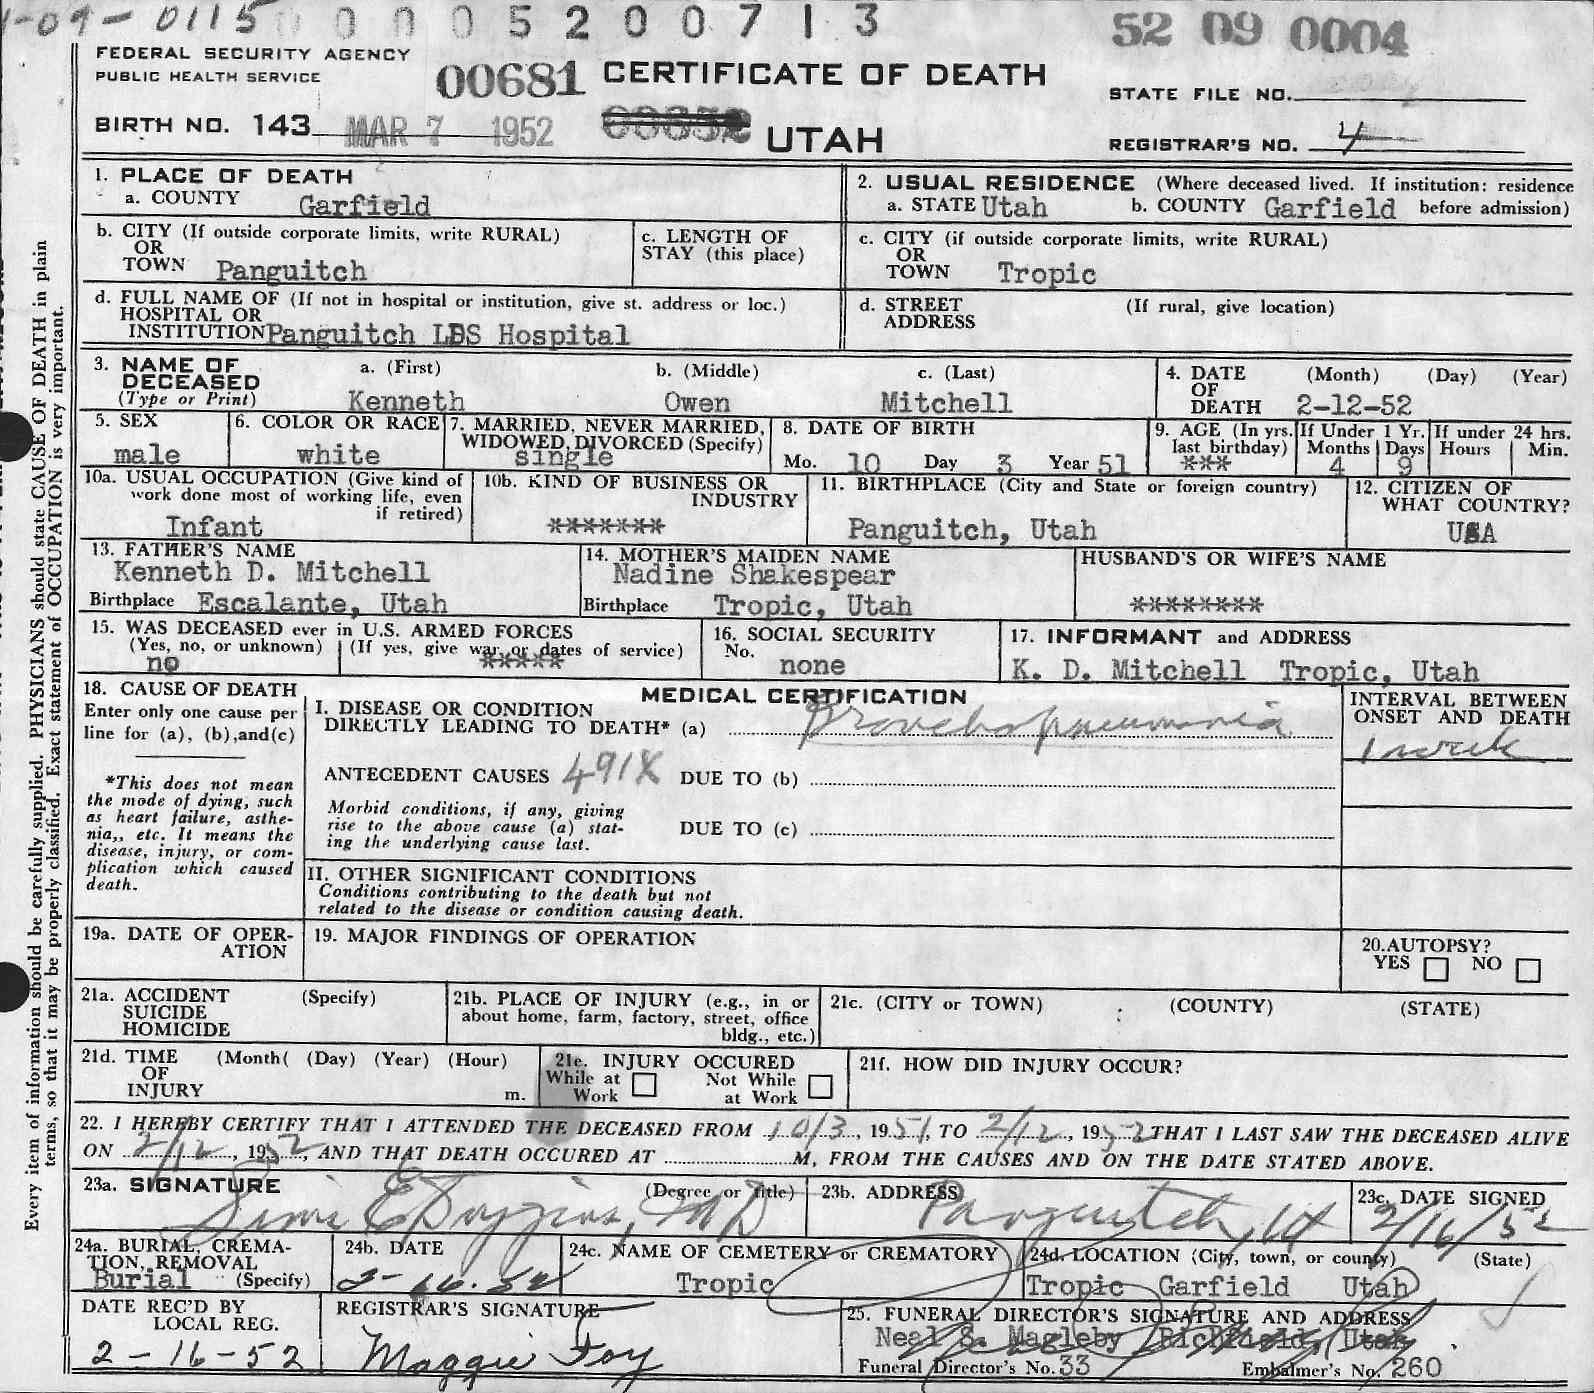 1-09-0115 0 0 0 5 2 0 0 7 1 3
52 09 0004
FEDERAL SECURITY AGENCY
PUBLIC HEALTH SERVICE
00681 CERTIFICATE OF DEATH
STATE FILE NO.
BIRTH NO. 143 MAR 7 1952
UTAH
REGISTRAR'S NO. 4
Every item of information should be carefully supplied. PHYSICIANS should state CAUSE OF DEATH in plain
terms, so that it may be properly classified. Exact statement of OCCUPATION is very important.
1. PLACE OF DEATH
a. COUNTY Garfield
2. USUAL RESIDENCE (Where deceased lived. If institution: residence
a. STATE Utah b. COUNTY Garfield before admission)
b. CITY (If outside corporate limits, write RURAL)
OR
TOWN Panguitch
c. LENGTH OF
STAY (this place)
c. CITY (if outside corporate limits, write RURAL)
OR
TOWN Tropic
d. FULL NAME OF (If not in hospital or institution, give st. address or loc.)
HOSPITAL OR
INSTITUTION Panguitch LDS Hospital
d. STREET (If rural, give location)
ADDRESS
3. NAME OF a. (First) b. (Middle) c. (Last)
DECEASED
(Type or Print) Kenneth Owen Mitchell
4. DATE (Month) (Day) (Year)
OF
DEATH 2-12-52
5. SEX
male
6. COLOR OR RACE
white
7. MARRIED, NEVER MARRIED,
WIDOWED, DIVORCED (Specify)
single
8. DATE OF BIRTH
Mo. 10 Day 3 Year 51
9. AGE (In yrs.
last birthday)
***
If Under 1 Yr.
Months Days
4 9
If under 24 hrs.
Hours Min.
10a. USUAL OCCUPATION (Give kind of
work done most of working life, even
if retired)
Infant
10b. KIND OF BUSINESS OR
INDUSTRY
*******
11. BIRTHPLACE (City and State or foreign country)
Panguitch, Utah
12. CITIZEN OF
WHAT COUNTRY?
USA
13. FATHER'S NAME
Kenneth D. Mitchell
Birthplace Escalante, Utah
14. MOTHER'S MAIDEN NAME
Nadine Shakespear
Birthplace Tropic, Utah
HUSBAND'S OR WIFE'S NAME
********
15. WAS DECEASED ever in U.S. ARMED FORCES
(Yes, no, or unknown) (If yes, give war or dates of service)
no *****
16. SOCIAL SECURITY
No.
none
17. INFORMANT and ADDRESS
K. D. Mitchell Tropic, Utah
18. CAUSE OF DEATH
Enter only one cause per
line for (a), (b),and(c)
*This does not mean
the mode of dying, such
as heart failure, asthe-
nia,, etc. It means the
disease, injury, or com-
plication which caused
death.
MEDICAL CERTIFICATION
I. DISEASE OR CONDITION
DIRECTLY LEADING TO DEATH* (a) Bronchopneumonia
ANTECEDENT CAUSES 491X DUE TO (b)
Morbid conditions, if any, giving
rise to the above cause (a) stat-
ing the underlying cause last.
DUE TO (c)
II. OTHER SIGNIFICANT CONDITIONS
Conditions contributing to the death but not
related to the disease or condition causing death.
INTERVAL BETWEEN
ONSET AND DEATH
1 week
19a. DATE OF OPER-
ATION
19. MAJOR FINDINGS OF OPERATION
20.AUTOPSY?
YES NO
21a. ACCIDENT (Specify)
SUICIDE
HOMICIDE
21b. PLACE OF INJURY (e.g., in or
about home, farm, factory, street, office
bldg., etc.)
21c. (CITY or TOWN) (COUNTY) (STATE)
21d. TIME (Month( (Day) (Year) (Hour)
OF
INJURY m.
21e. INJURY OCCURED
While at Not While
Work at Work
21f. HOW DID INJURY OCCUR?
22. I HEREBY CERTIFY THAT I ATTENDED THE DECEASED FROM 10/3, 1951, TO 2/12, 1952 THAT I LAST SAW THE DECEASED ALIVE
ON 2/12, 1952, AND THAT DEATH OCCURED AT M, FROM THE CAUSES AND ON THE DATE STATED ABOVE.
23a. SIGNATURE (Degree or title)
Sims E Duggins, MD
23b. ADDRESS
Panguitch, Ut
23c. DATE SIGNED
2/16/52
24a. BURIAL, CREMA-
TION, REMOVAL
Burial (Specify)
24b. DATE
2-16-52
24c. NAME OF CEMETERY or CREMATORY
Tropic
24d. LOCATION (City, town, or county) (State)
Tropic Garfield Utah
DATE REC'D BY
LOCAL REG.
2-16-52
REGISTRAR'S SIGNATURE
Maggie Foy
25. FUNERAL DIRECTOR'S SIGNATURE AND ADDRESS
Neal S. Magleby Richfield, Utah
Funeral Director's No. 33 Embalmer's No. 260